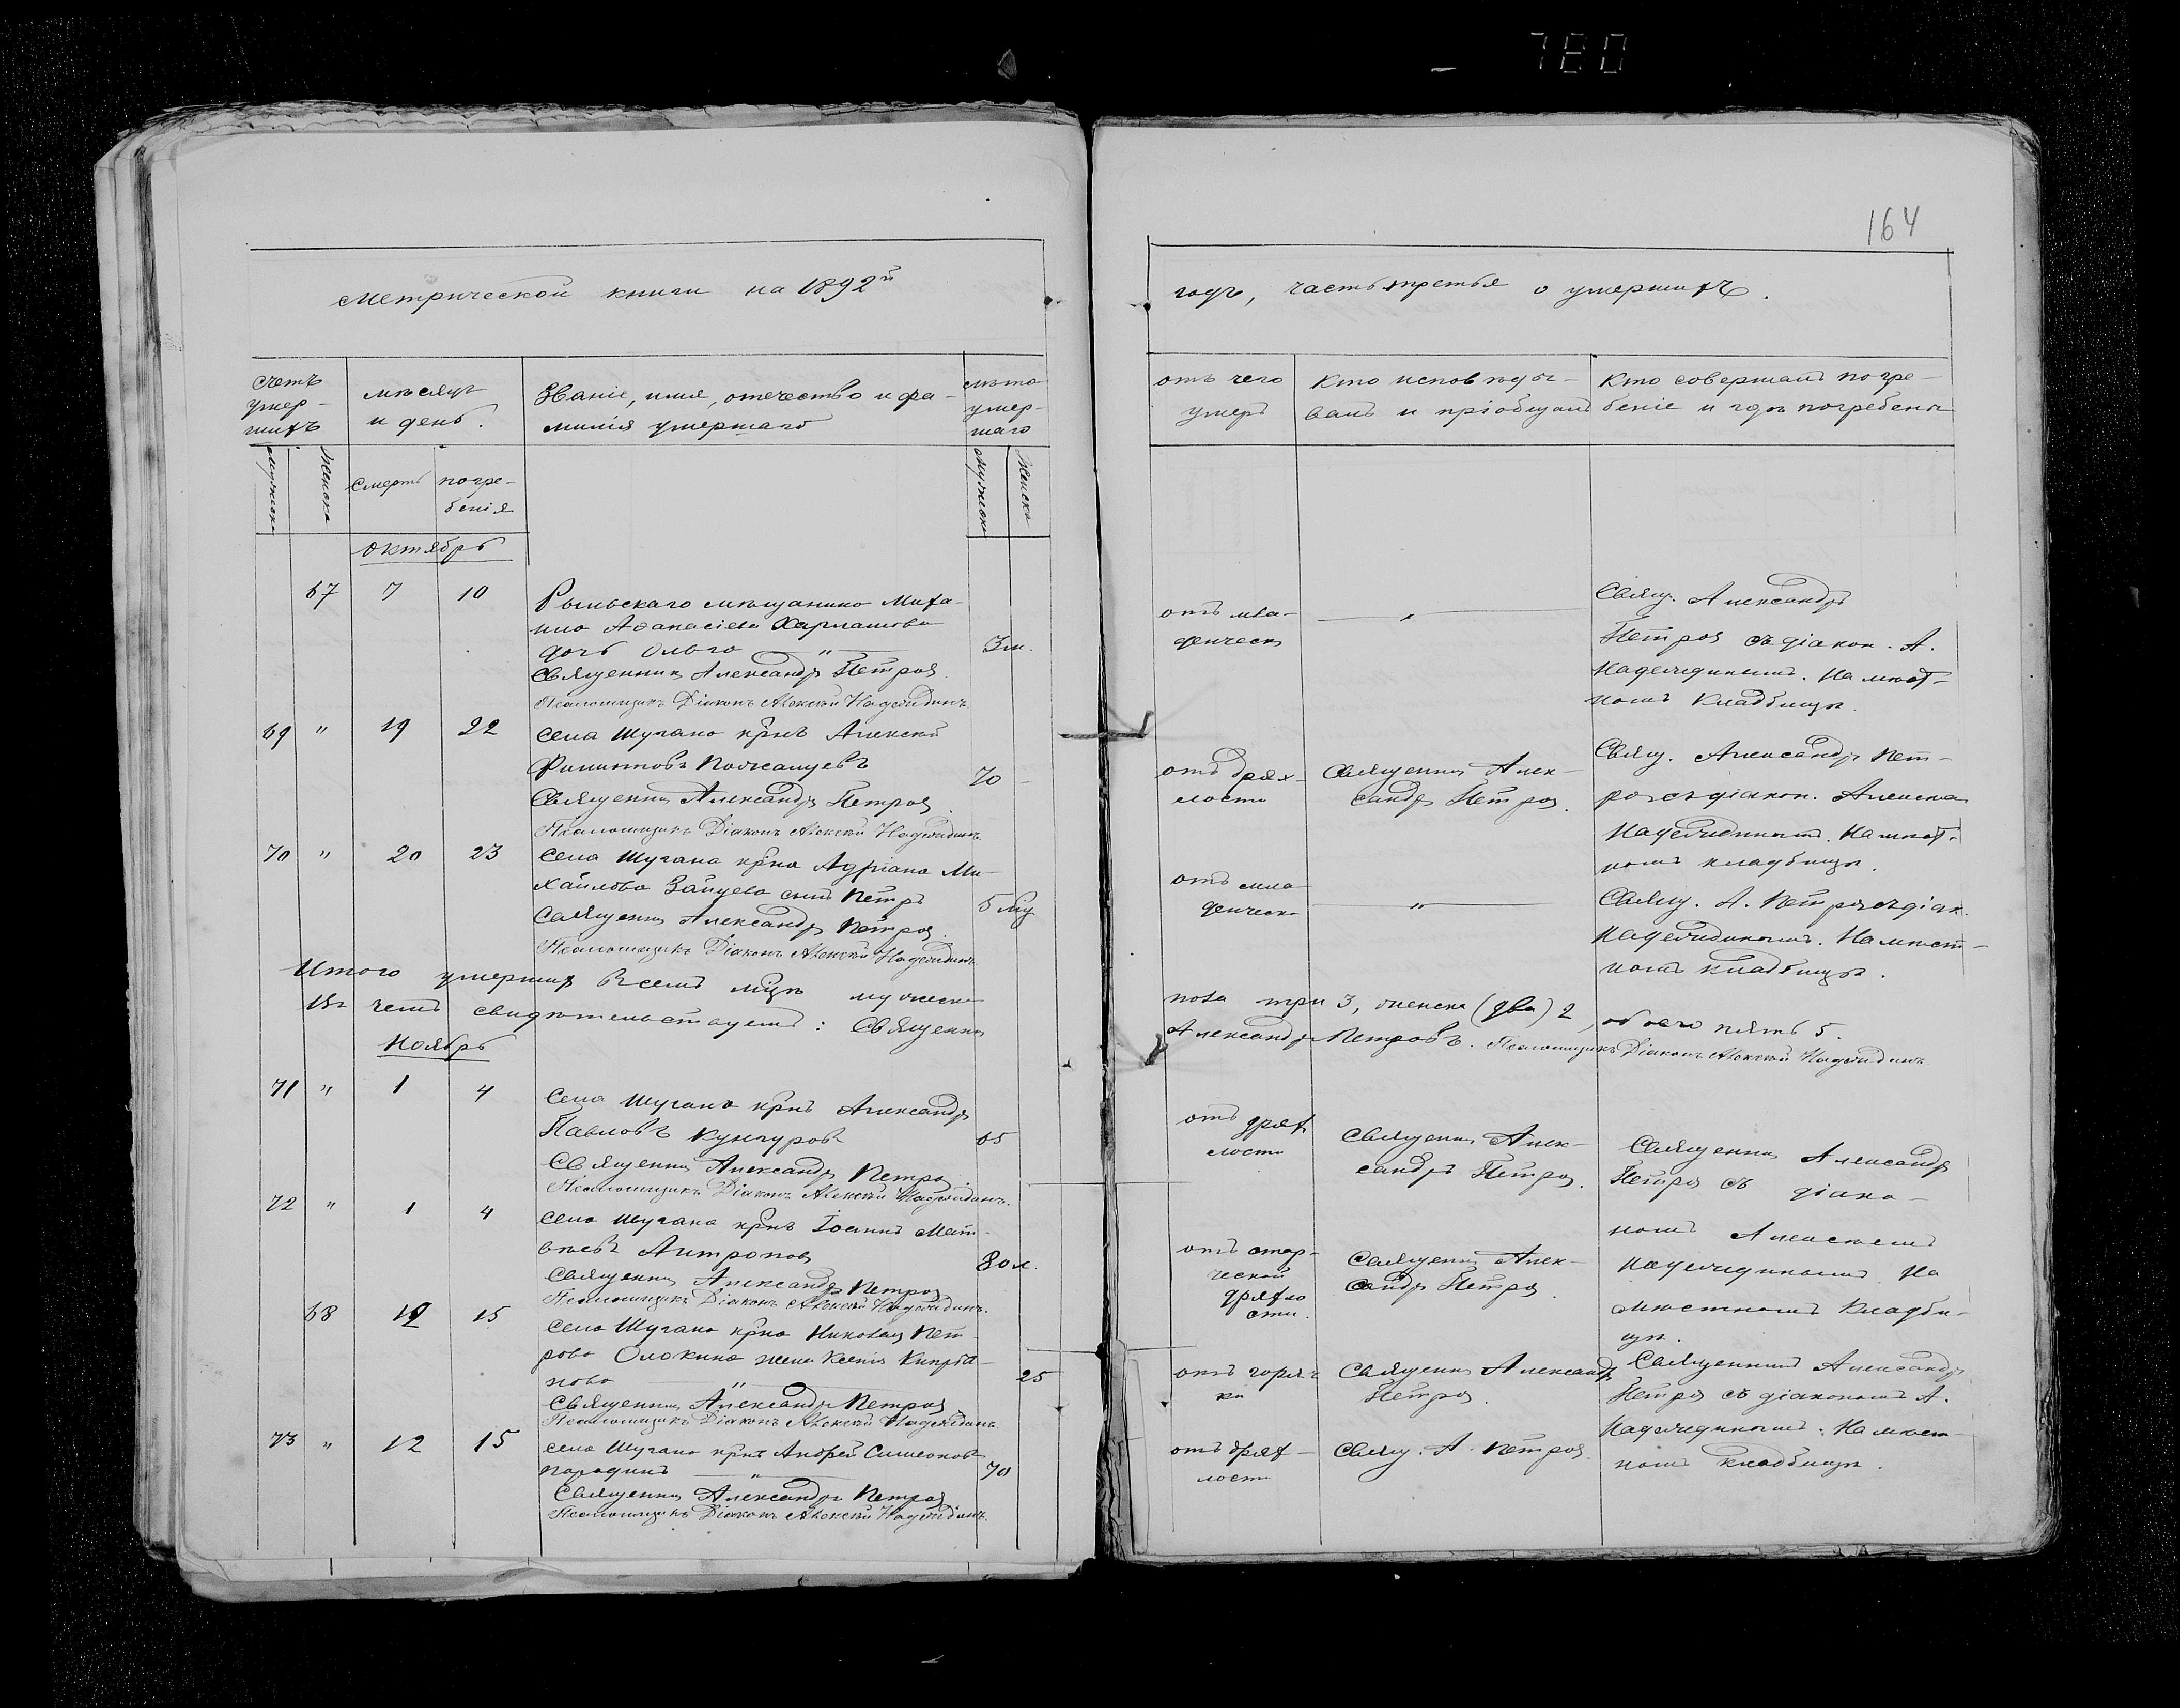 780
164
Метрической книги на 1892й
годъ, часть третья о умершихъ.
Счетъ умер-
шихъ
мѣсяцъ
и день.
Званіе, имя, отечество и фа-
милія умершаго
лѣта
умер-
шаго
отъ чего
умеръ
Кто исповѣды-
валъ и пріобщалъ
Кто совершалъ погре-
беніе и гдѣ погребены
Мужска
Женска
Смерть
погре-
бенія
Мужска
Женска
октябрь
67 7 10
Рыльскаго мѣщанина Миха-
ила Аѳанасіева
дочь Ольга — " —
3 м.
Священникъ Александръ Петров
Псаломщикъ Діаконъ Алексѣй Надеждинъ
отъ мла-
денческ
Свящ. Александръ
Петров съ діакон. А.
Надеждинымъ. На мѣст-
номъ Кладбищѣ.
69 " 19 22
Села Шугана крнъ Алексѣй
Филипповъ
70 -
Священни Александръ Петров
Псаломщикъ Діаконъ Алексѣй Надеждинъ
отъ дрях-
лости
Священни Алек-
сандр Петров.
Свящ. Александр Пет-
ров съ діакон. Алексѣ
Надеждинымъ. На мѣст-
номъ кладбищѣ.
70 " 20 23
Села Шугана крна Адріана Ми-
хайлова Зайцева сынъ Петръ
5 мц
Священни Александръ Петров
Псаломщикъ Діаконъ Алексѣй Надеждинъ
отъ мла-
денческ
"
Свящ. А. Петров съ діак.
Надеждинымъ. На мѣст-
номъ кладбищѣ.
Итого умерших В семъ мцѣ мужеска
пола три 3, женска (два) 2, обоего пять 5.
Въ чемъ свидѣтельствуемъ: Священни
Александръ Петровъ. Псаломщикъ Діаконъ Алексѣй Надеждинъ
Ноябрь
71 " 1 4
Села Шугана крнъ Александръ
Павловъ Кунгуровъ
65
Священни Александръ Петро.
Псаломщикъ Діаконъ Алексѣй Надеждинъ.
отъ дрях
лости
Священни Алек-
сандръ Петров.
Священни Александръ
Петров съ діако-
номъ Алексѣемъ
Надеждинымъ На
мѣстномъ Кладби-
щѣ.
72 " 1 4
Села Шугана крнъ Іоаннъ Мат-
вѣевъ Антропов
80 л.
Священни Александръ Петров
Псаломщикъ Діаконъ Алексѣй Надеждинъ.
отъ стар-
ческой
дряхло
сти.
Священни Алек-
сандр Петров.
68 12 15
Села Шугана крна Николая Пет-
рова жена Ксенія Кипрія-
нова — " —
25
Священни Александръ Петров
Псаломщикъ Діаконъ Алексѣй Надеждинъ.
отъ горяч-
ки
Священни Александръ
Петров.
Священникъ Александръ
Петров съ діакономъ А.
Надеждинымъ. На мѣст-
номъ кладбищѣ.
73 " 12 15
села Шугана крнъ Андрей Симеоновъ
— " —
70
Священни Александръ Петров
Псаломщикъ Діаконъ Алексѣй Надеждинъ.
отъ дрях-
лости
Свящ. А. Петров.